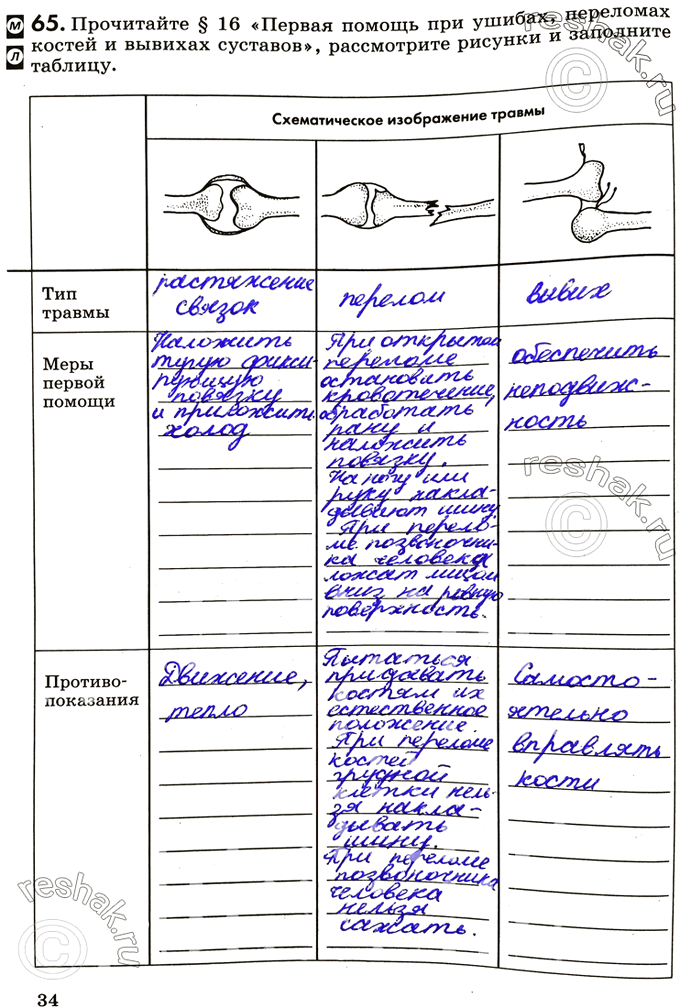 65. Прочитайте § 16 «Первая помощь при ушибах, переломах
костей и вывихах суставов», рассмотрите рисунки и заполните
таблицу.
Схематическое изображение травмы
Тип
травмы
растяжение
связок
перелом
вывих
Меры
первой
помощи
Наложить
тугую фикси-
рующую
повязку
и приложить
холод
При открытом
переломе
остановить
кровотечение,
обработать
рану и
наложить
повязку.
На ногу или
руку накла-
дывают шину.
При перело-
ме позвоночни-
ка человека
ложат лицом
вниз на ровную
поверхность.
обеспечить
неподвиж-
ность
Противо-
показания
Движение,
тепло
Пытаться
придавать
костям их
естественное
положение.
При переломе
костей
грудной
клетки нель-
зя накла-
дывать
шину.
При переломе
позвоночника
человека
нельзя
сажать.
Самосто-
ятельно
вправлять
кости
34
reshak.ru
reshak.ru
reshak.ru